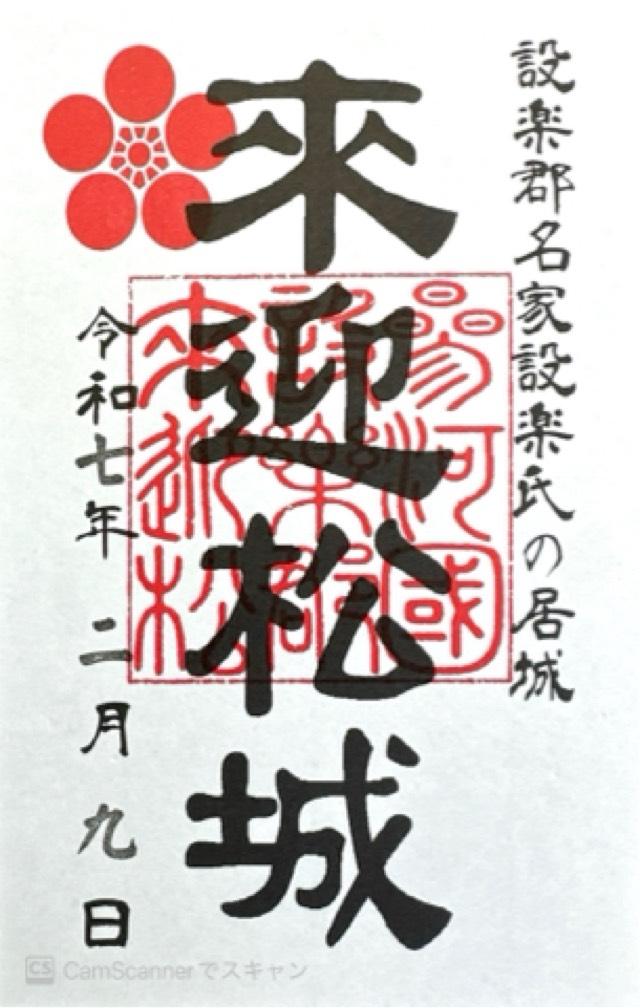 設楽郡名家設楽氏の居城
來迎松城
參河國
設樂郡
來迎松
令和七年 二月九日
CS CamScannerでスキャン